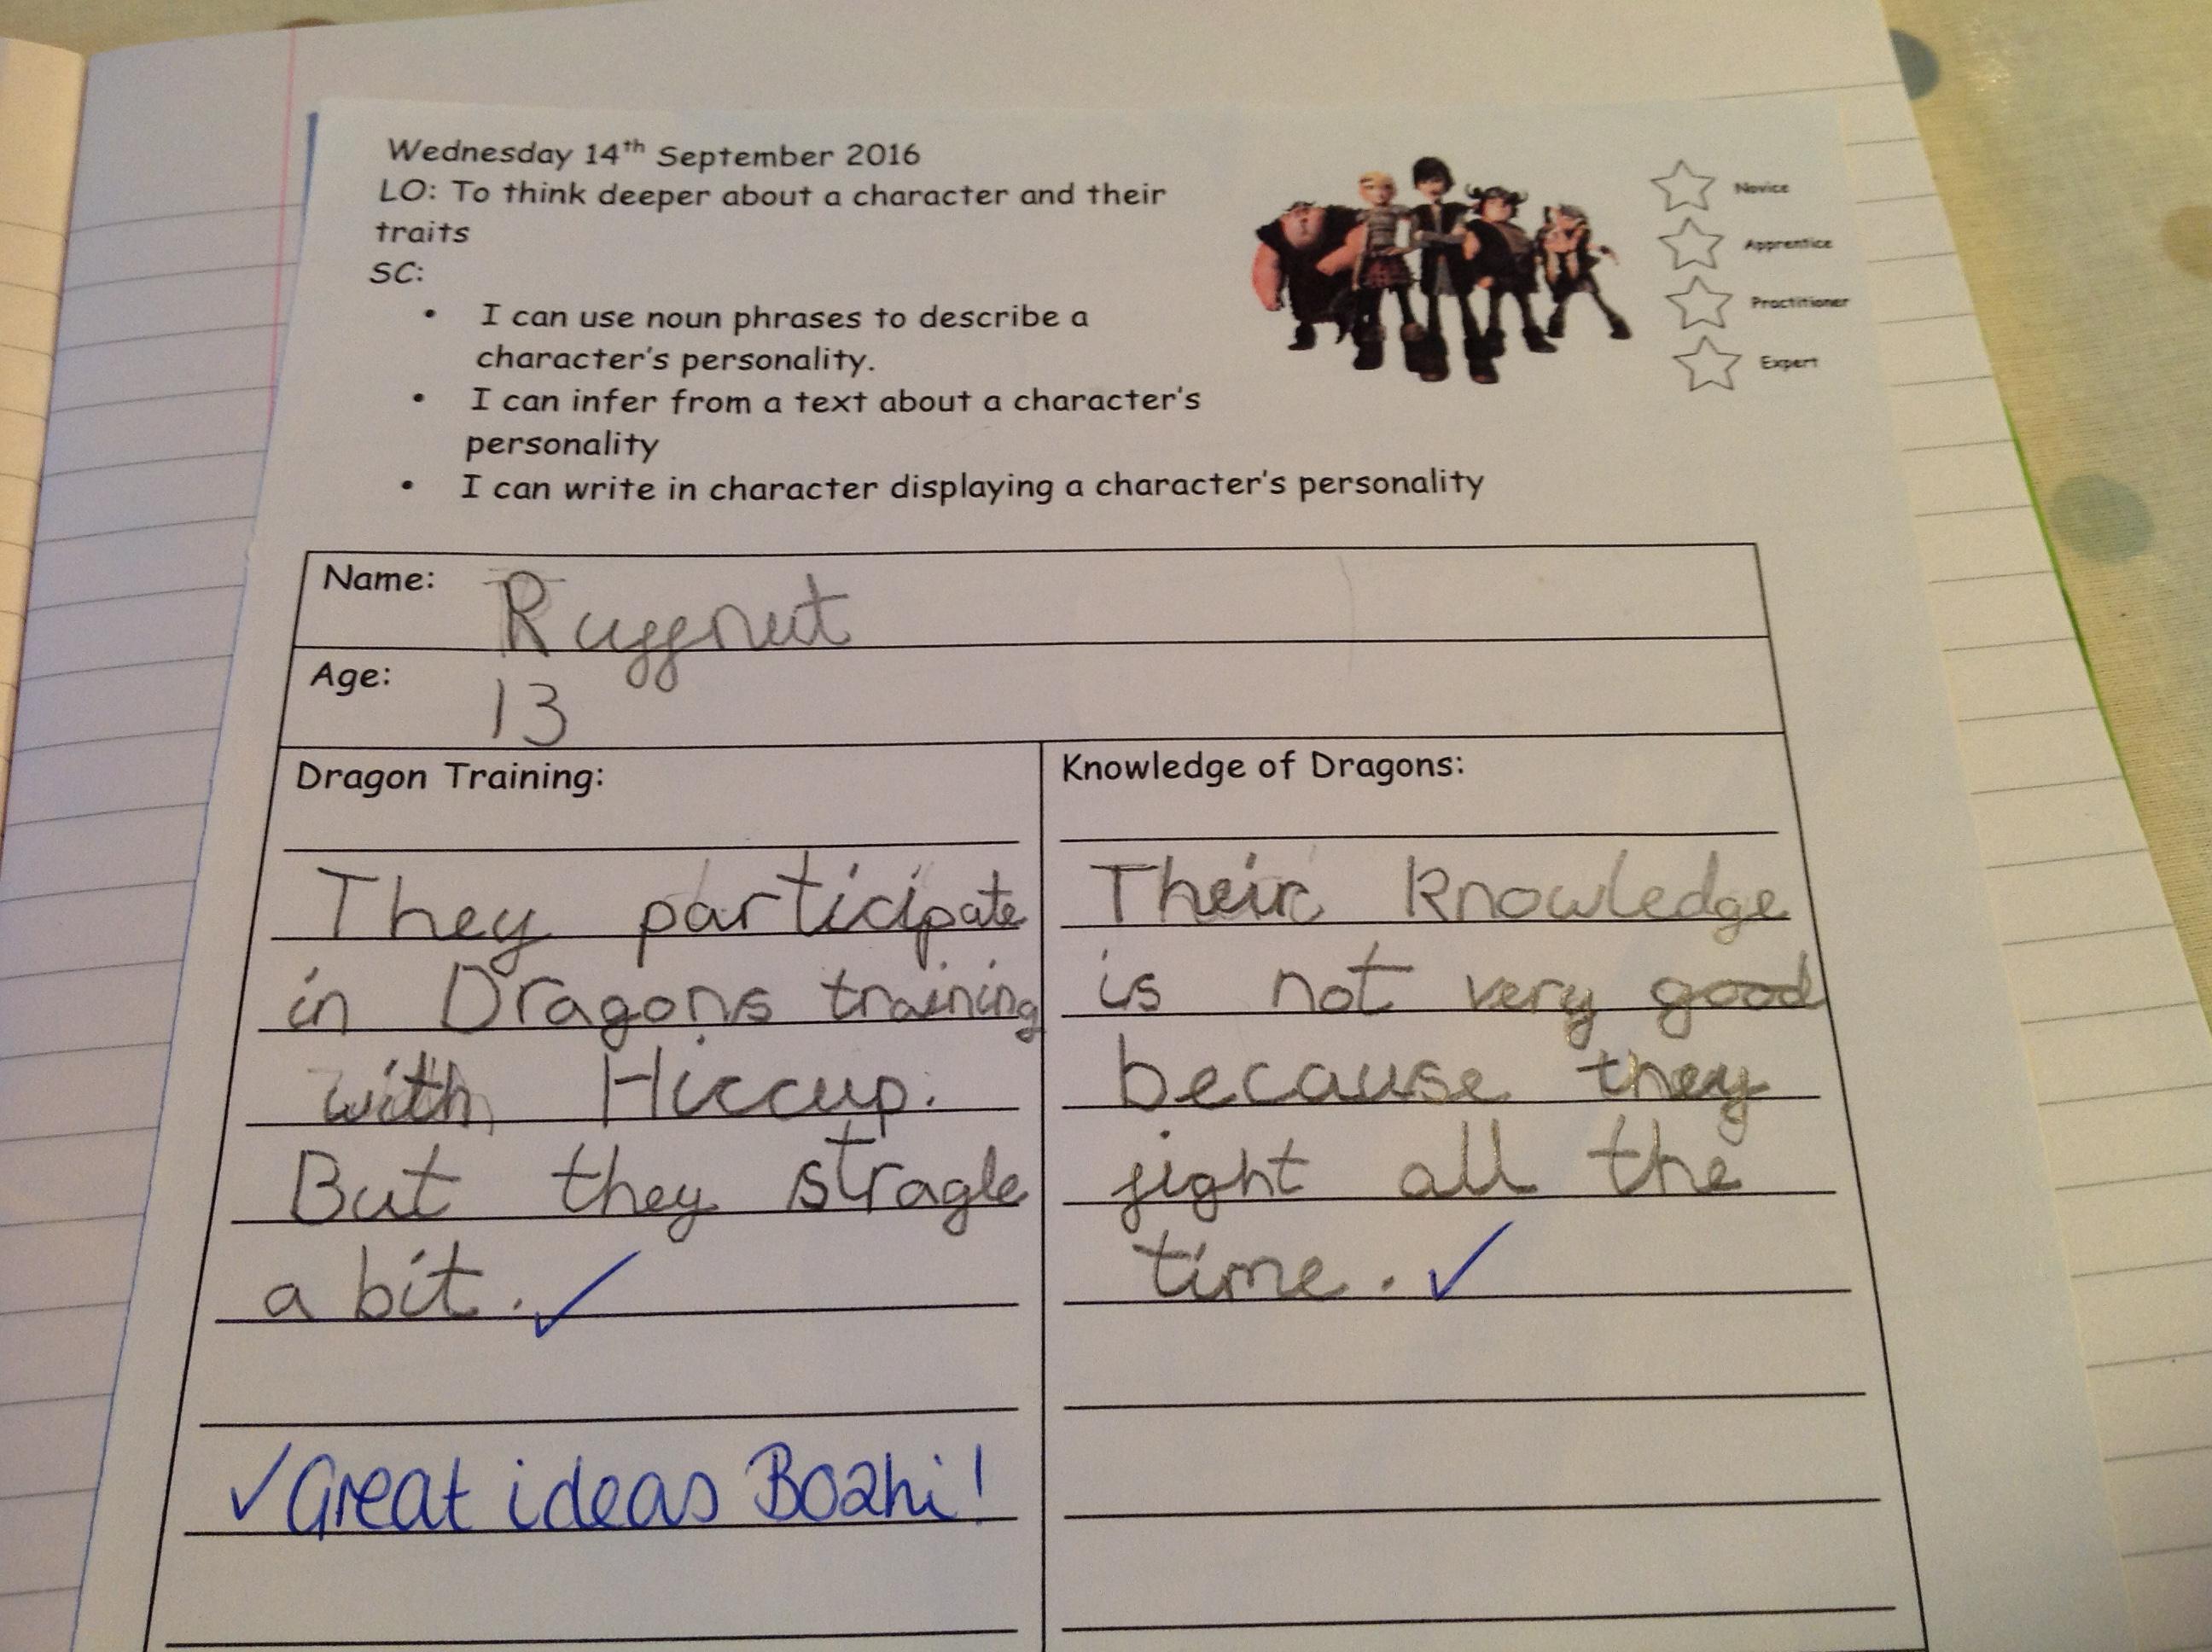 Wednesday 14th September 2016
LO: To think deeper about a character and their
traits
SC:
• I can use noun phrases to describe a
character's personality.
• I can infer from a text about a character's
personality
• I can write in character displaying a character's personality
Novice
Apprentice
Practitioner
Expert
Name: Ruffnut
Age: 13
Dragon Training:
They participate
in Dragons training
with Hiccup.
But they stragle
a bit. ✓
✓ Great ideas Bozhi!
Knowledge of Dragons:
Their knowledge
is not very good
because they
fight all the
time. ✓